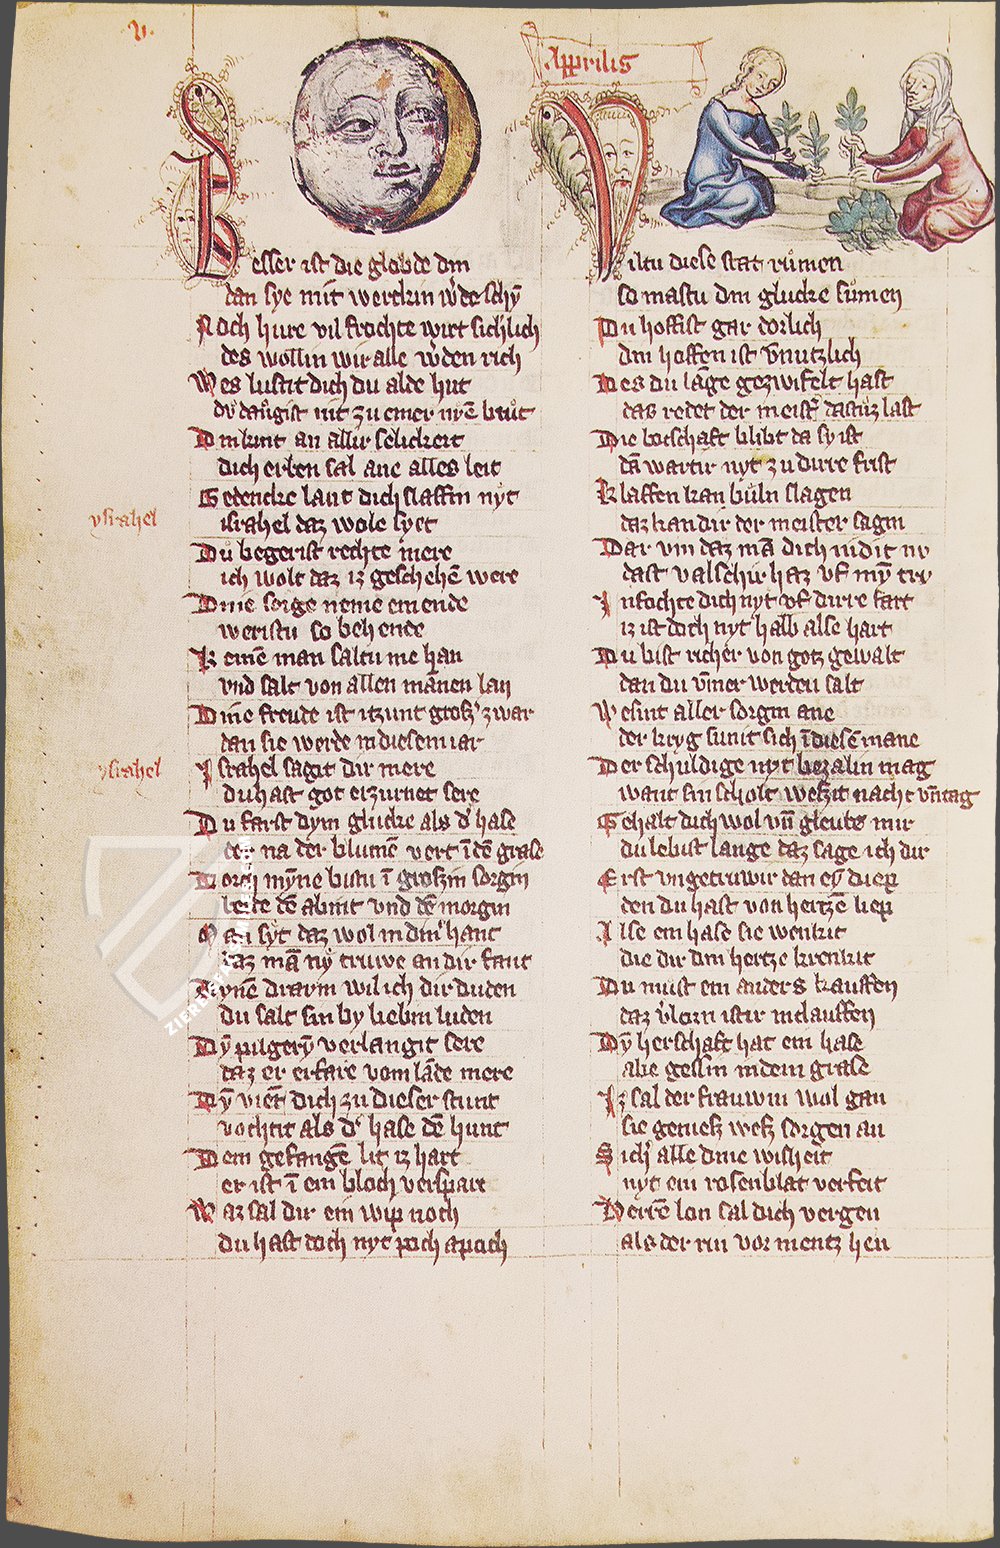 v.
Besser ist die globde din
dan sye mit werckin w'de schyn
Noch hure vil frochte wirt sich'lich
des wollin wir alle w'den rich
Wes lustit dich du alde hut
du daugist nit zu einer nyen brut
Din kint an allir selickeit
dich erben sal ane alles leit
Gedencke lant dich slaffin nyt
israhel daz wole syet
ysrahel
Du begerist rechte mere
ich wolt daz iz geschehē were
Dine sorge neme ein ende
weristu so behende
Keinē man saltu me han
vnd salt von allen mānen lan
Dine freude ist itzunt grosz zwar
dan sie werde in diesem iar
Israhel sagit dir mere
du hast got erzurnet sere
ysrahel
Du farst dym glucke als d' hase
der na der blumē vert ī dē grase
Doch myne bistu ī groszin sorgin
beide dē abint vnd dē morgin
Man syt daz wol in din' hant
daz mā ny truwe an dir fant
Dynē draym wil ich dir duden
du salt sin by liebin luden
Dy pilgery verlangit sere
daz er erfare vom lāde mere
Dy vient dich zu dieser stunt
vochtit als d' hase dē hunt
Dem gefangē lit iz hart
er ist ī ein bloch verspart
Waz sal dir ein wip noch
du hast doch nyt poch a poch
Apprilis
Wiltu diese stat rumen
so mastu din glucke sumen
Du hoffist gar dorlich
din hoffen ist vnnutzlich
Des du lāge gezwifelt hast
das redet der meist' dastuz last
Die botschaft blibt da sy ist
dā wartir nyt zu dirre frist
Klaffen kan buln slagen
daz kan dir der meister sagin
Dar vm daz mā dich nidit nv
dast valschir haz vf my trv
Infochte dich nyt vf dirre fart
iz ist doch nyt halb alse hart
Du bist richer von gotz gewalt
dan du vmer werden salt
Wesint aller sorgin ane
der kryg sunit sich ī diesē mane
Der schuldige nyt bezalin mag
want sin scholt weszit nacht vn tag
Gehalt dich wol vn gleube mir
du lebist lange daz sage ich dir
Erst vngetruwir dan ey diep
den du hast von hertzē liep
Alse ein hase sie wenkit
die dir din hertze krenkit
Du must ein anders kauffen
daz v'lorn ist ir intlauffen
Dy herschaft hat ein hase
abe gessin in dem grase
Iz sal der frauwin wol gan
sie genisz wesz sorgen an
Sich alle dine wisheit
nyt ein rosenblat verfeit
Herrē lon sal dich vergen
als der rin vor mentz hen
ZIEREIS FAKSIMILES.COM